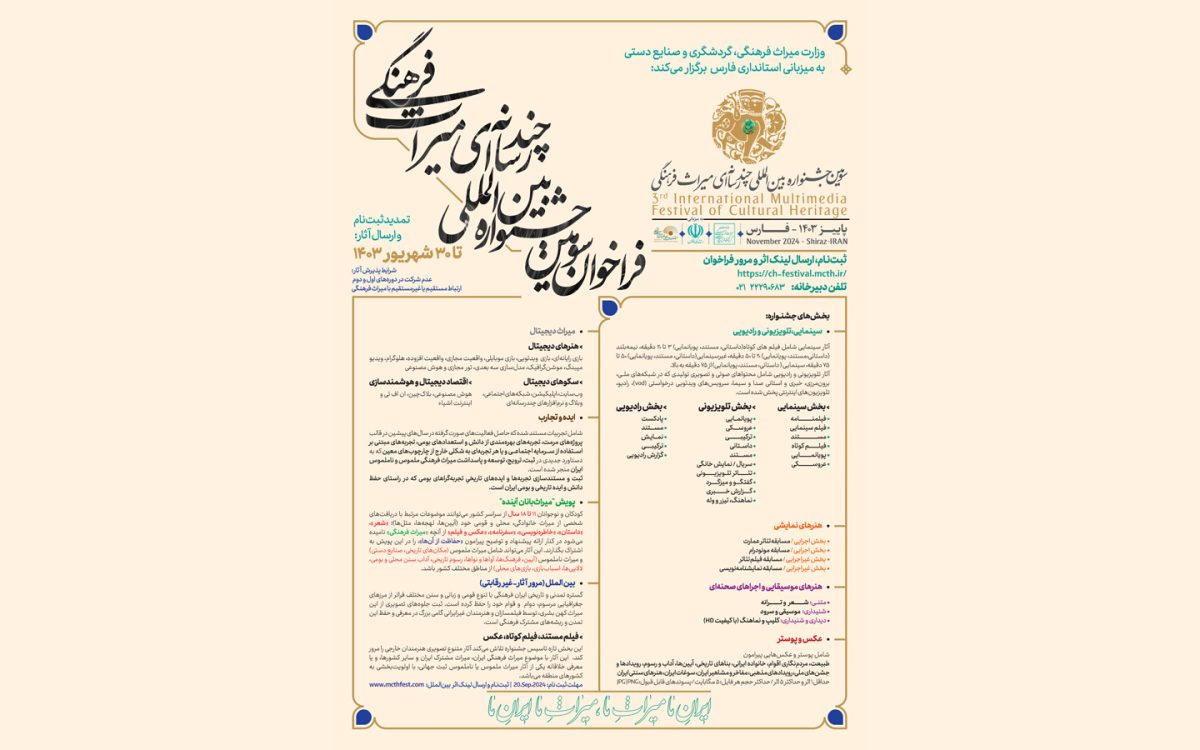 وزارت میراث فرهنگی، گردشگری و صنایع دستی
به میزبانی استانداری فارس برگزار می‌کند:
فراخوان سومین
جشنواره بین‌المللی
چندرسانه‌ای
میراث فرهنگی
سومین جشنواره بین‌المللی چندرسانه‌ای میراث فرهنگی
3rd International Multimedia
Festival of Cultural Heritage
پاییز ۱۴۰۳ - فارس
November 2024 - Shiraz-IRAN
ثبت‌نام، ارسال لینک اثر و مرور فراخوان
https://ch-festival.mcth.ir/
تلفن دبیرخانه: ۲۲۲۹۰۶۸۳ ۰۲۱
تمدید ثبت‌نام
و ارسال آثار:
تا ۳۰ شهریور ۱۴۰۳
شرایط پذیرش آثار:
عدم شرکت در دوره‌های اول و دوم
ارتباط مستقیم یا غیرمستقیم با میراث فرهنگی
بخش‌های جشنواره:
• سینمایی، تلویزیونی و رادیویی
آثار سینمایی شامل فیلم های کوتاه(داستانی، مستند، پویانمایی) ۳ تا ۳۰ دقیقه، نیمه‌بلند
(داستانی،مستند، پویانمایی) ۳۰ تا ۵۰ دقیقه، غیرسینمایی(داستانی،مستند، پویانمایی) ۵۰ تا
۷۵ دقیقه، سینمایی (داستانی، مستند، پویانمایی) از ۷۵ دقیقه به بالا.
آثار تلویزیونی و رادیویی شامل محتواهای صوتی و تصویری تولیدی که در شبکه‌های ملی،
برون‌مرزی، خبری و استانی صدا و سیما، سرویس‌های ویدئویی درخواستی (vod)، رادیو،
تلویزیون‌های اینترنتی پخش شده است.
› بخش سینمایی
• فیلمنامه
• فیلم سینمایی
• مستند
• فیلم کوتاه
• پویانمایی
• عروسکی
› بخش تلویزیونی
• پویانمایی
• عروسکی
• ترکیبی
• داستانی
• مستند
• سریال / نمایش خانگی
• تئاتر تلویزیونی
• گفتگو و میزگرد
• گزارش خبری
• نماهنگ، تیزر و وله
› بخش رادیویی
• پادکست
• مستند
• نمایش
• ترکیبی
• گزارش رادیویی
• هنرهای نمایشی
• بخش اجرایی / مسابقه تئاتر عمارت
• بخش اجرایی / مسابقه مونودرام
• بخش غیراجرایی / مسابقه فیلم‌تئاتر
• بخش غیراجرایی / مسابقه نمایشنامه‌نویسی
• هنرهای موسیقایی و اجراهای صحنه‌ای
• متنی: شعر و ترانه
• شنیداری: موسیقی و سرود
• دیداری و شنیداری: کلیپ و نماهنگ (با کیفیت HD)
• عکس و پوستر
شامل پوستر و عکس‌هایی پیرامون
طبیعت، مردم‌نگاری اقوام، خانواده ایرانی، بناهای تاریخی، آیین‌ها، آداب و رسوم، رویدادها و
جشن‌های ملی، رویدادهای مذهبی، مفاخر و مشاهیر ایران، سوغات ایران، هنرهای سنتی ایران
حداقل ۱ اثر و حداکثر ۵ اثر / حداکثر حجم هر فایل: ۵ مگابایت / پسوندهای فایل قبول: JPG|PNG
• میراث دیجیتال
› هنرهای دیجیتال
بازی رایانه‌ای، بازی ویدئویی، بازی موبایلی، واقعیت مجازی، واقعیت افزوده، هلوگرام، ویدیو
مپینگ، موشن‌گرافیک، مدل‌سازی سه بعدی، تور مجازی و هوش مصنوعی
› سکوهای دیجیتال
وب‌سایت، اپلیکیشن، شبکه‌های اجتماعی،
وبلاگ و نرم‌افزارهای چندرسانه‌ای
› اقتصاد دیجیتال و هوشمندسازی
هوش مصنوعی، بلاک‌چین، ان اف تی و
اینترنت اشیاء
• ایده و تجارب
شامل تجربیات مستند شده که حاصل فعالیت‌های صورت گرفته در سال‌های پیشین در قالب
پروژه‌های مرمت، تجربه‌های بهره‌مندی از دانش و استعدادهای بومی، تجربه‌های مبتنی بر
استفاده از سرمایه اجتماعی و یا هر تجربه‌ای به شکلی خارج از چارچوب‌های معین که به
دستاورد جدیدی در ثبت، ترویج، توسعه و پاسداشت میراث فرهنگی ملموس و ناملموس
ایران منجر شده است.
ثبت و مستندسازی تجربه‌ها و ایده‌های تاریخی تجربه‌گراهای بومی که در راستای حفظ
دانش و ایده تاریخی و بومی ایران است.
• پویش "میراث‌بانان آینده"
کودکان و نوجوانان ۱۱ تا ۱۸ سال از سراسر کشور می‌توانند موضوعات مرتبط با دریافت‌های
شخصی از میراث خانوادگی، محلی و قومی خود (آیین‌ها، لهجه‌ها، مثل‌ها)؛ «شعر»،
«داستان»، «خاطره‌نویسی»، «سفرنامه»، «عکس و فیلم» از آنچه «میراث فرهنگی» نامیده
می‌شود در کنار ارائه پیشنهاد و توضیح پیرامون «حفاظت از آن‌ها»، را در این پویش به
اشتراک بگذارند. این آثار می‌تواند شامل میراث ملموس (مکان‌های تاریخی، صنایع دستی)
و میراث ناملموس (آیین، فرهنگ‌ها، آواها و نواها، رسوم تاریخی، آداب سنن محلی و بومی،
لالایی‌ها، اسباب‌بازی، بازی‌های محلی) از مناطق مختلف کشور باشد.
• بین‌الملل (مرور آثار-غیر رقابتی)
گستره تمدنی و تاریخی ایران فرهنگی با تنوع قومی و زبانی و سنن مختلف فراتر از مرزهای
جغرافیایی مرسوم، دوام و قوام خود را حفظ کرده است. ثبت جلوه‌های تصویری از این
میراث کهن بشری، توسط فیلمسازان و هنرمندان غیرایرانی گامی بزرگ در معرفی و حفظ این
تمدن و ریشه‌های مشترک فرهنگی است.
› فیلم مستند، فیلم کوتاه، عکس
این بخش تازه تاسیس جشنواره تلاش می‌کند آثار متنوع تصویری هنرمندان خارجی را مرور
کند. این آثار با موضوع میراث فرهنگی ایران، میراث مشترک ایران و سایر کشورها، و یا
معرفی خلاقانه یکی از آثار میراث ملموس یا ناملموس ثبت جهانی، با اولویت‌بخشی به
کشورهای منطقه می‌باشد.
مهلت ثبت نام: 20.Sep.2024 | ثبت‌نام و ارسال لینک اثر بین‌الملل: www.mcthfest.com
ایرانِ ما میراثِ ما، میراثِ ما ایرانِ ما